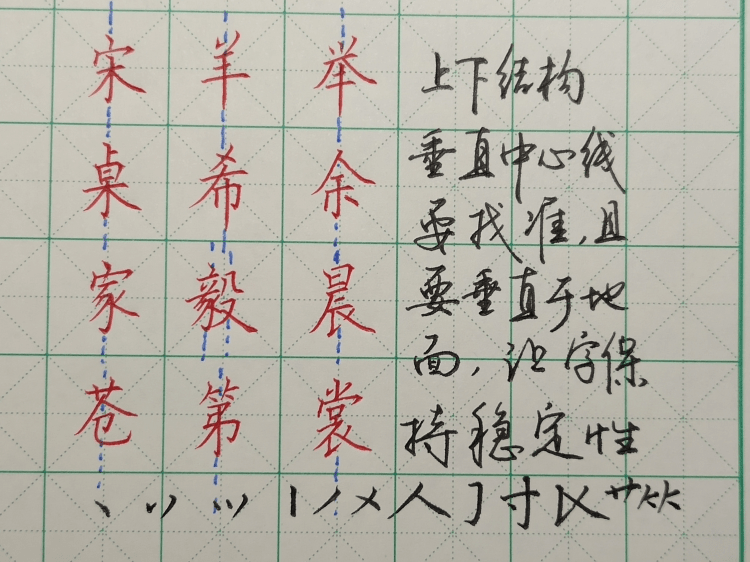 宋 羊 举 上下结构
桌 希 余 垂直中心线
要找准,且
家 毅 晨 要垂直于地
面,让字保
苍 第 裳 持稳定性
丶 丷 ⺌ 丨 丿 乂 人 亅 寸 区 艹 ⺮